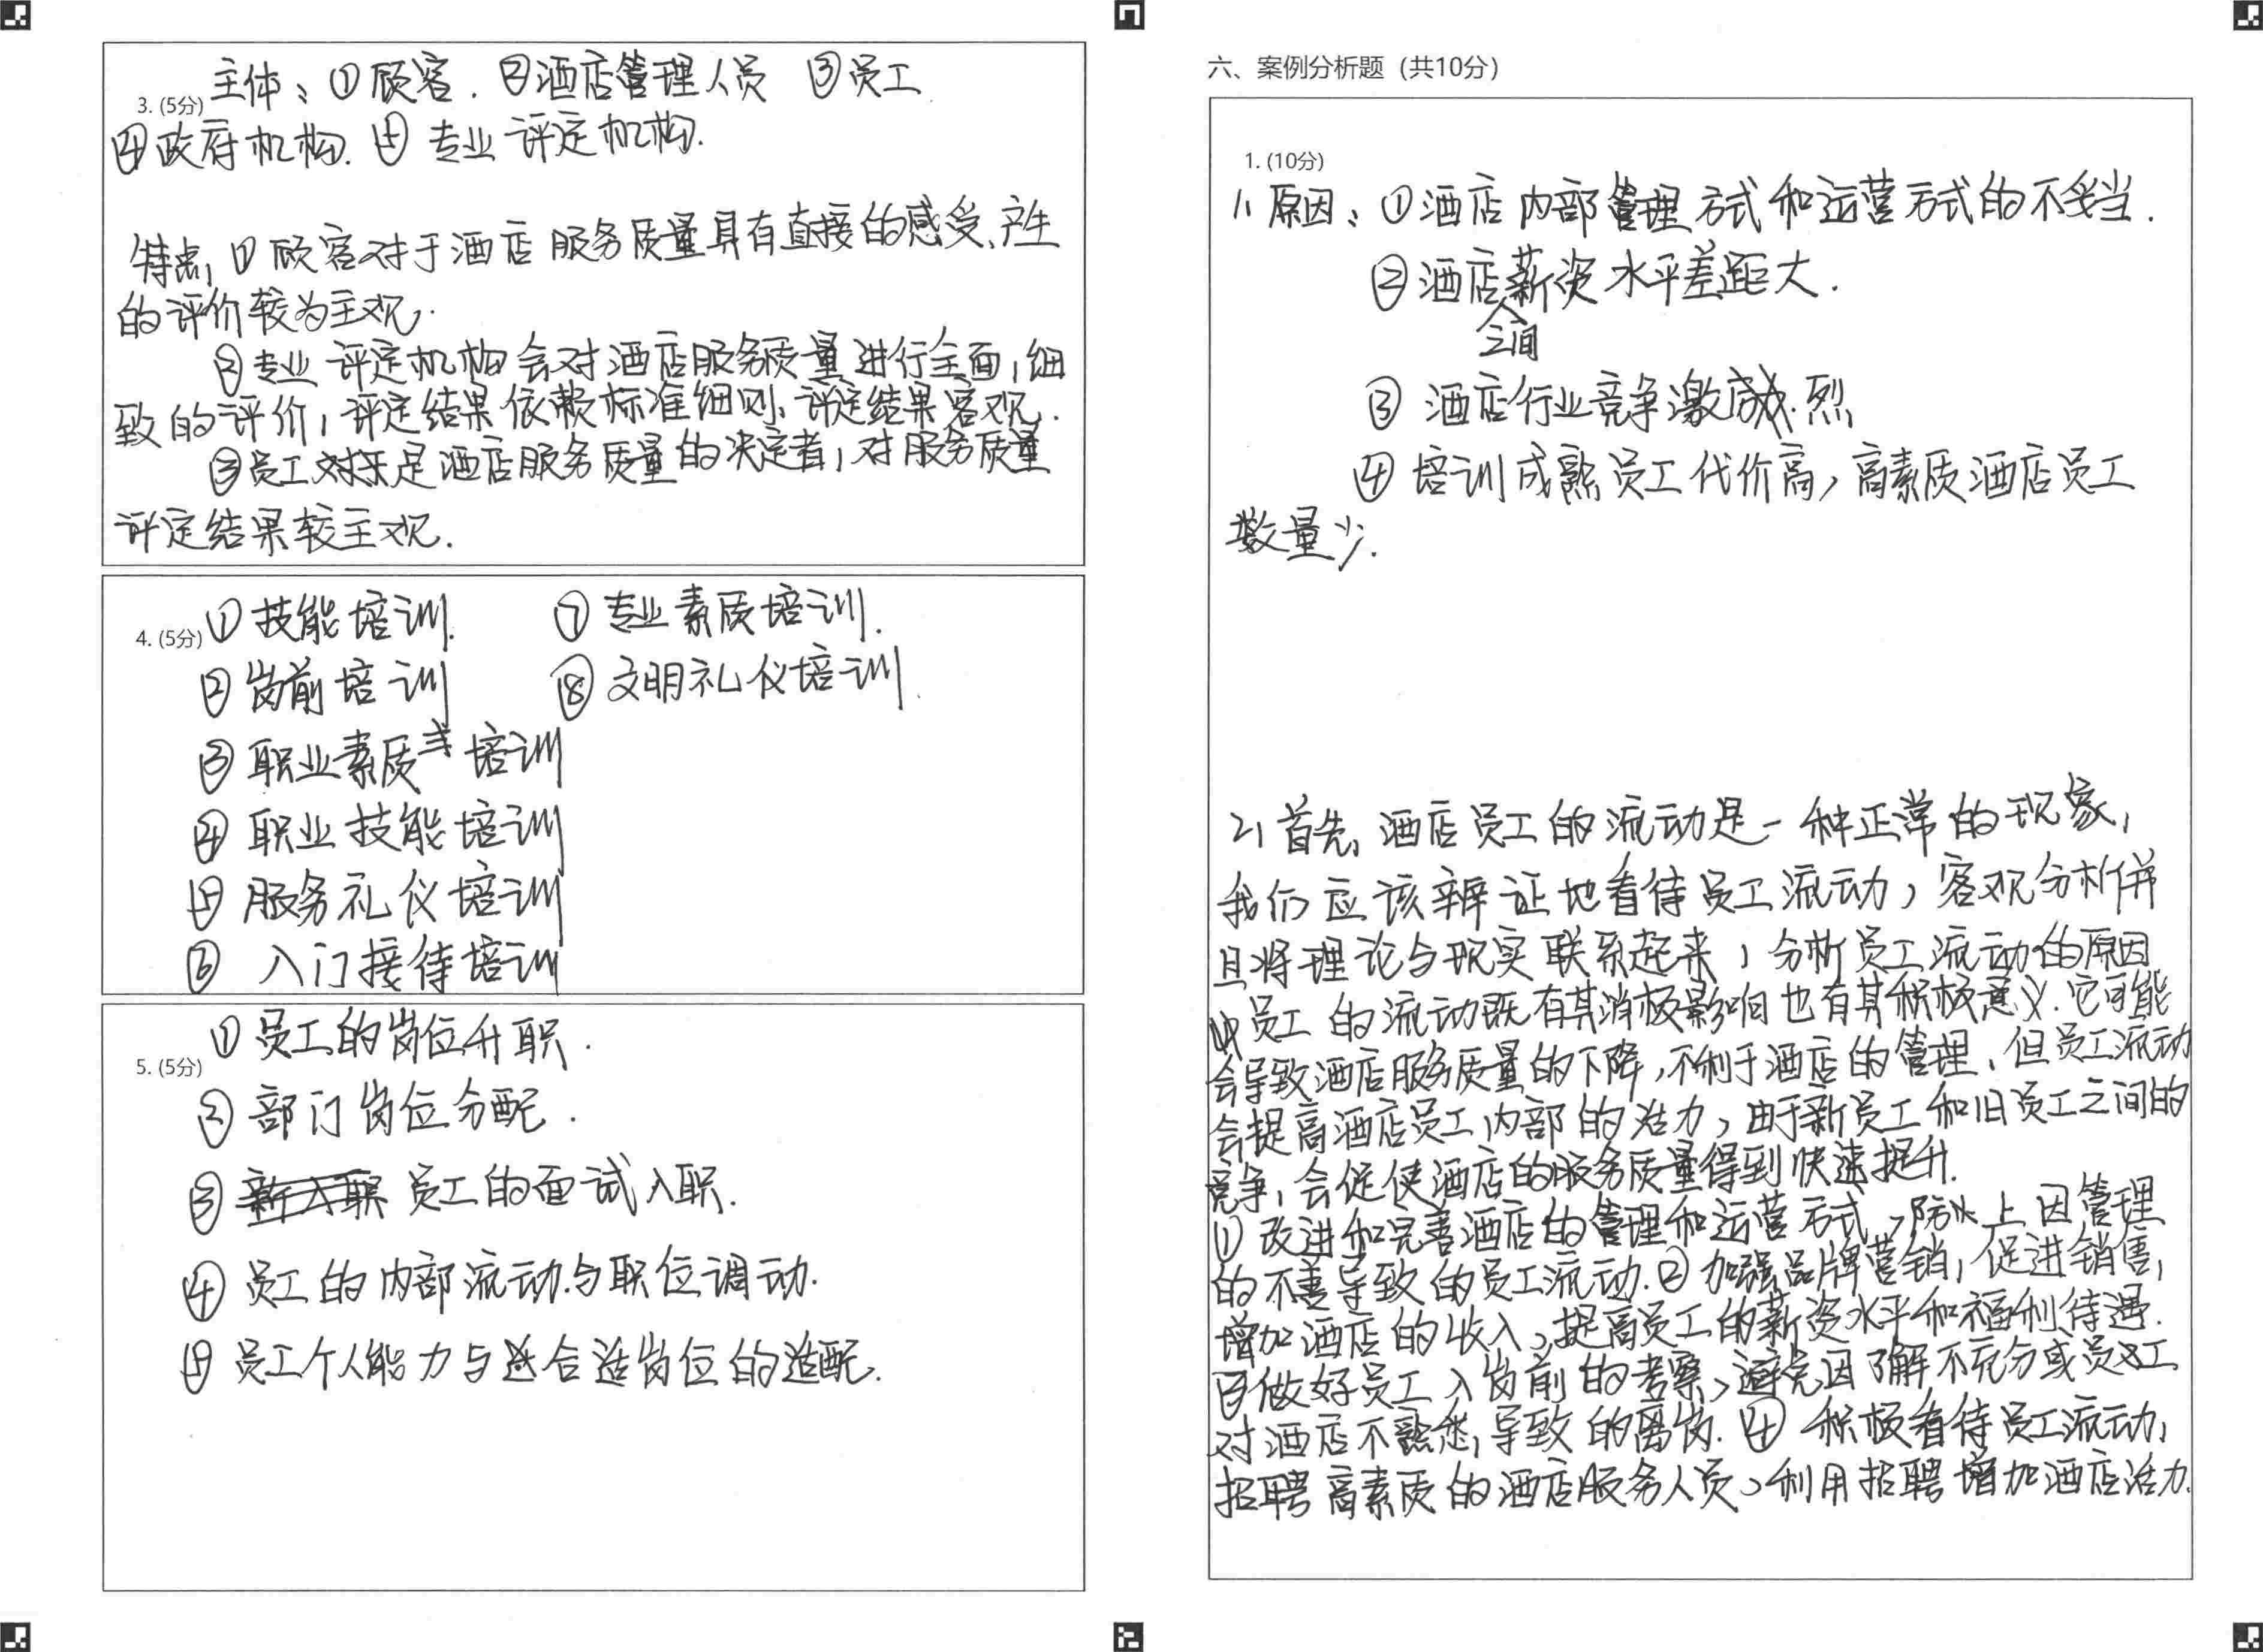 3. (5分)
主体：①顾客. ②酒店管理人员 ③员工
④政府机构. ⑤ 专业评定机构.
特点, ①顾客对于酒店服务质量具有直接的感受、产生
的评价较为主观.
②专业评定机构会对酒店服务质量进行全面，细
致的评价，评定结果依赖标准细则、评定结果客观.
③员工是酒店服务质量的决定者，对服务质量
评定结果较主观.
4. (5分)
①技能培训. ⑦专业素质培训.
②岗前培训 ⑧文明礼仪培训.
③职业素质培训
④职业技能培训
⑤服务礼仪培训
⑥入门接待培训
5. (5分)
①员工的岗位升职.
②部门岗位分配.
③新入职 员工的面试入职.
④员工的内部流动与职位调动.
⑤员工个人能力与适合适岗位的适配.
六、案例分析题（共10分）
1. (10分)
1、原因：①酒店内部管理方式和运营方式的不妥当.
②酒店之间薪资水平差距大.
③酒店行业竞争激烈
④培训成熟员工代价高，高素质酒店员工
数量少.
2、首先，酒店员工的流动是一种正常的现象，
我们应该辨证地看待员工流动，客观分析併
且将理论与现实联系起来，分析员工流动的原因
员工的流动既有其消极影响也有其积极意义.它可能
会导致酒店服务质量的下降，不利于酒店的管理，但员工流动
会提高酒店员工内部的活力，由于新员工和旧员工之间的
竞争，会促使酒店的服务质量得到快速提升.
①改进和完善酒店的管理和运营方式，防止因管理
的不善导致的员工流动.②加强品牌营销，促进销售，
增加酒店的收入，提高员工的薪资水平和福利待遇.
③做好员工入岗前的考察，避免因了解不充分或员工
对酒店不熟悉，导致的离岗.④积极看待员工流动，
招聘高素质的酒店服务人员，利用招聘增加酒店活力.